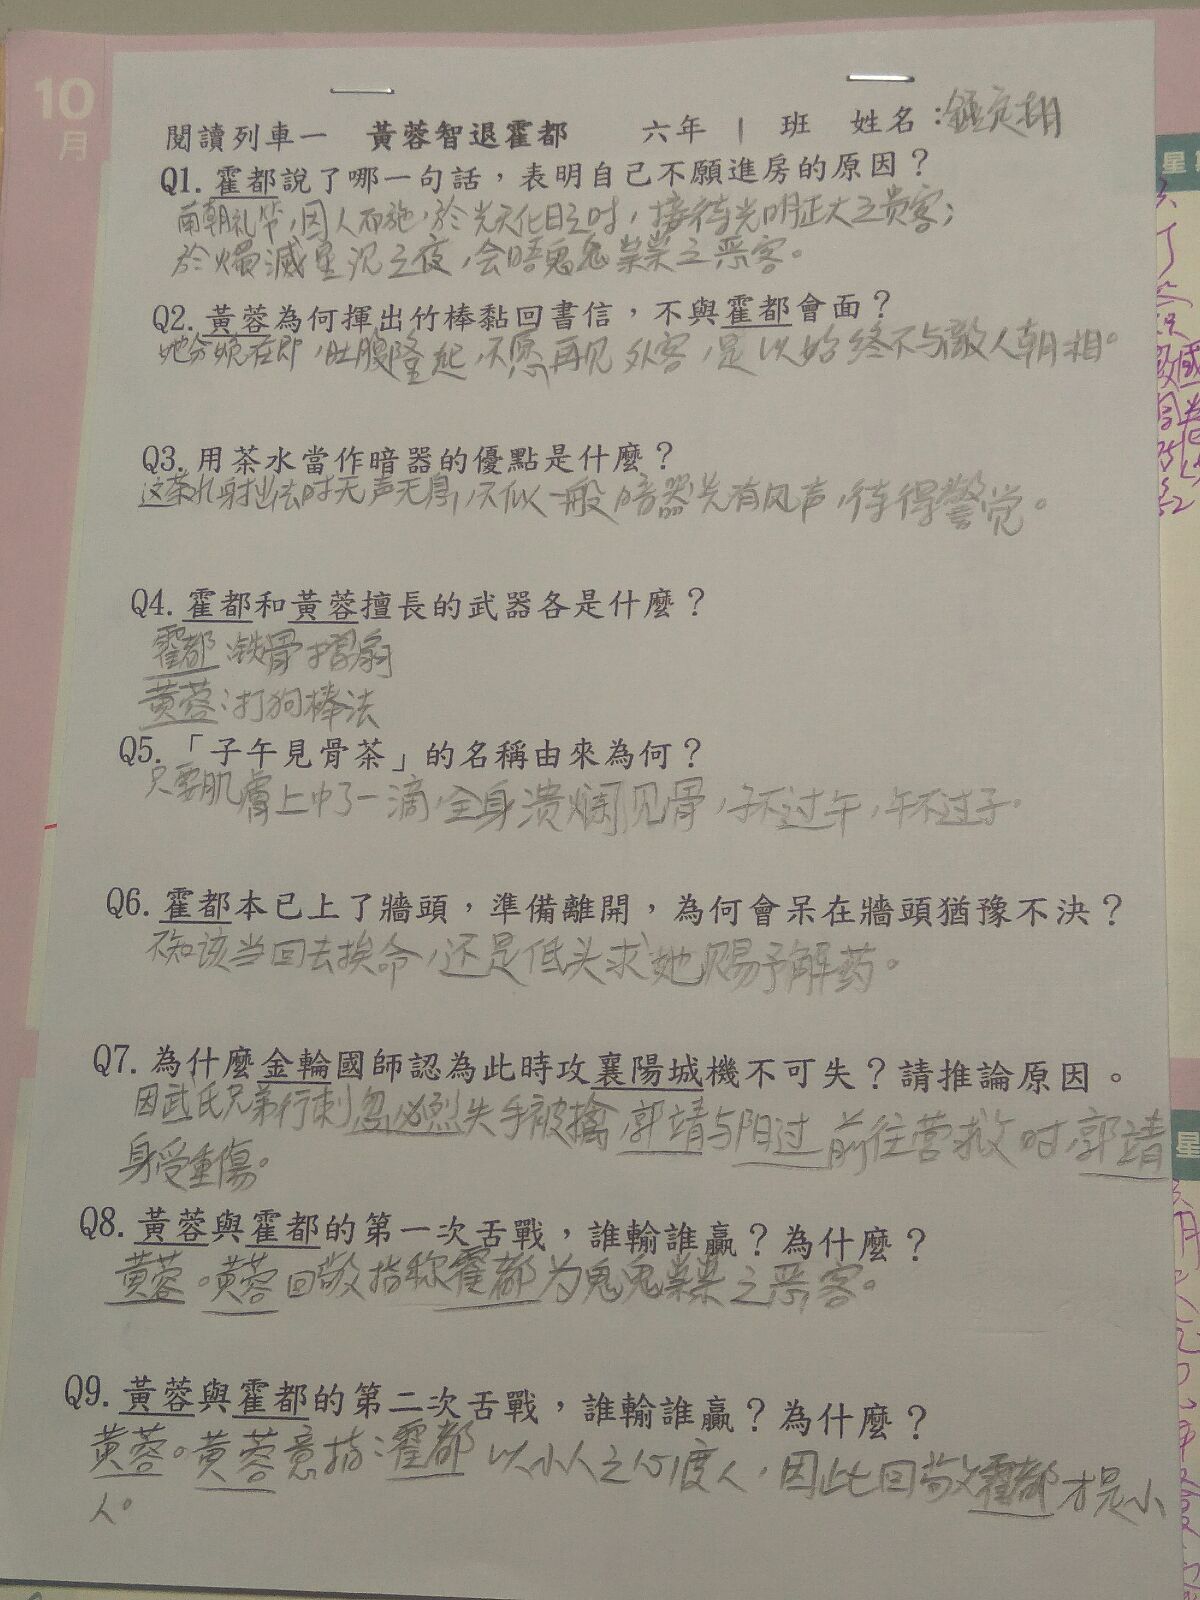 10
月
閱讀列車一 黃蓉智退霍都 六年 1 班 姓名：
Q1. 霍都說了哪一句話，表明自己不願進房的原因？
南朝礼节，因人而施，於光天化日之时，接待光明正大之贵客；
於燭滅星沉之夜，会晤鬼鬼祟祟之恶客。
Q2. 黃蓉為何揮出竹棒黏回書信，不與霍都會面？
她分娩在即，肚腹隆起，不愿再见外客，是以始終不与敵人朝相。
Q3. 用茶水當作暗器的優點是什麼？
这茶水射出去时无声无息，不似一般暗器先有风声，待得警觉。
Q4. 霍都和黃蓉擅長的武器各是什麼？
霍都：铁骨摺扇
黄蓉：打狗棒法
Q5. 「子午見骨茶」的名稱由來為何？
只要肌膚上中了一滴，全身溃爛见骨，子不过午，午不过子。
Q6. 霍都本已上了牆頭，準備離開，為何會呆在牆頭猶豫不決？
不知该当回去挨命，还是低头求她赐予解药。
Q7. 為什麼金輪國師認為此時攻襄陽城機不可失？請推論原因。
因武氏兄弟行刺忽必烈失手被擒，郭靖与阳过前往营救时，郭靖
身受重傷。
Q8. 黃蓉與霍都的第一次舌戰，誰輸誰贏？為什麼？
黄蓉。黄蓉回敬指称霍都为鬼鬼祟祟之恶客。
Q9. 黃蓉與霍都的第二次舌戰，誰輸誰贏？為什麼？
黄蓉。黄蓉意指：霍都以小人之心度人，因此回敬霍都才是小
人。
星
星